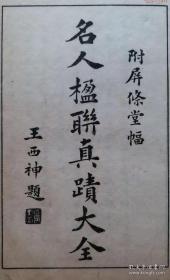 附屏條堂幅
名人楹聯真蹟大全
王西神題